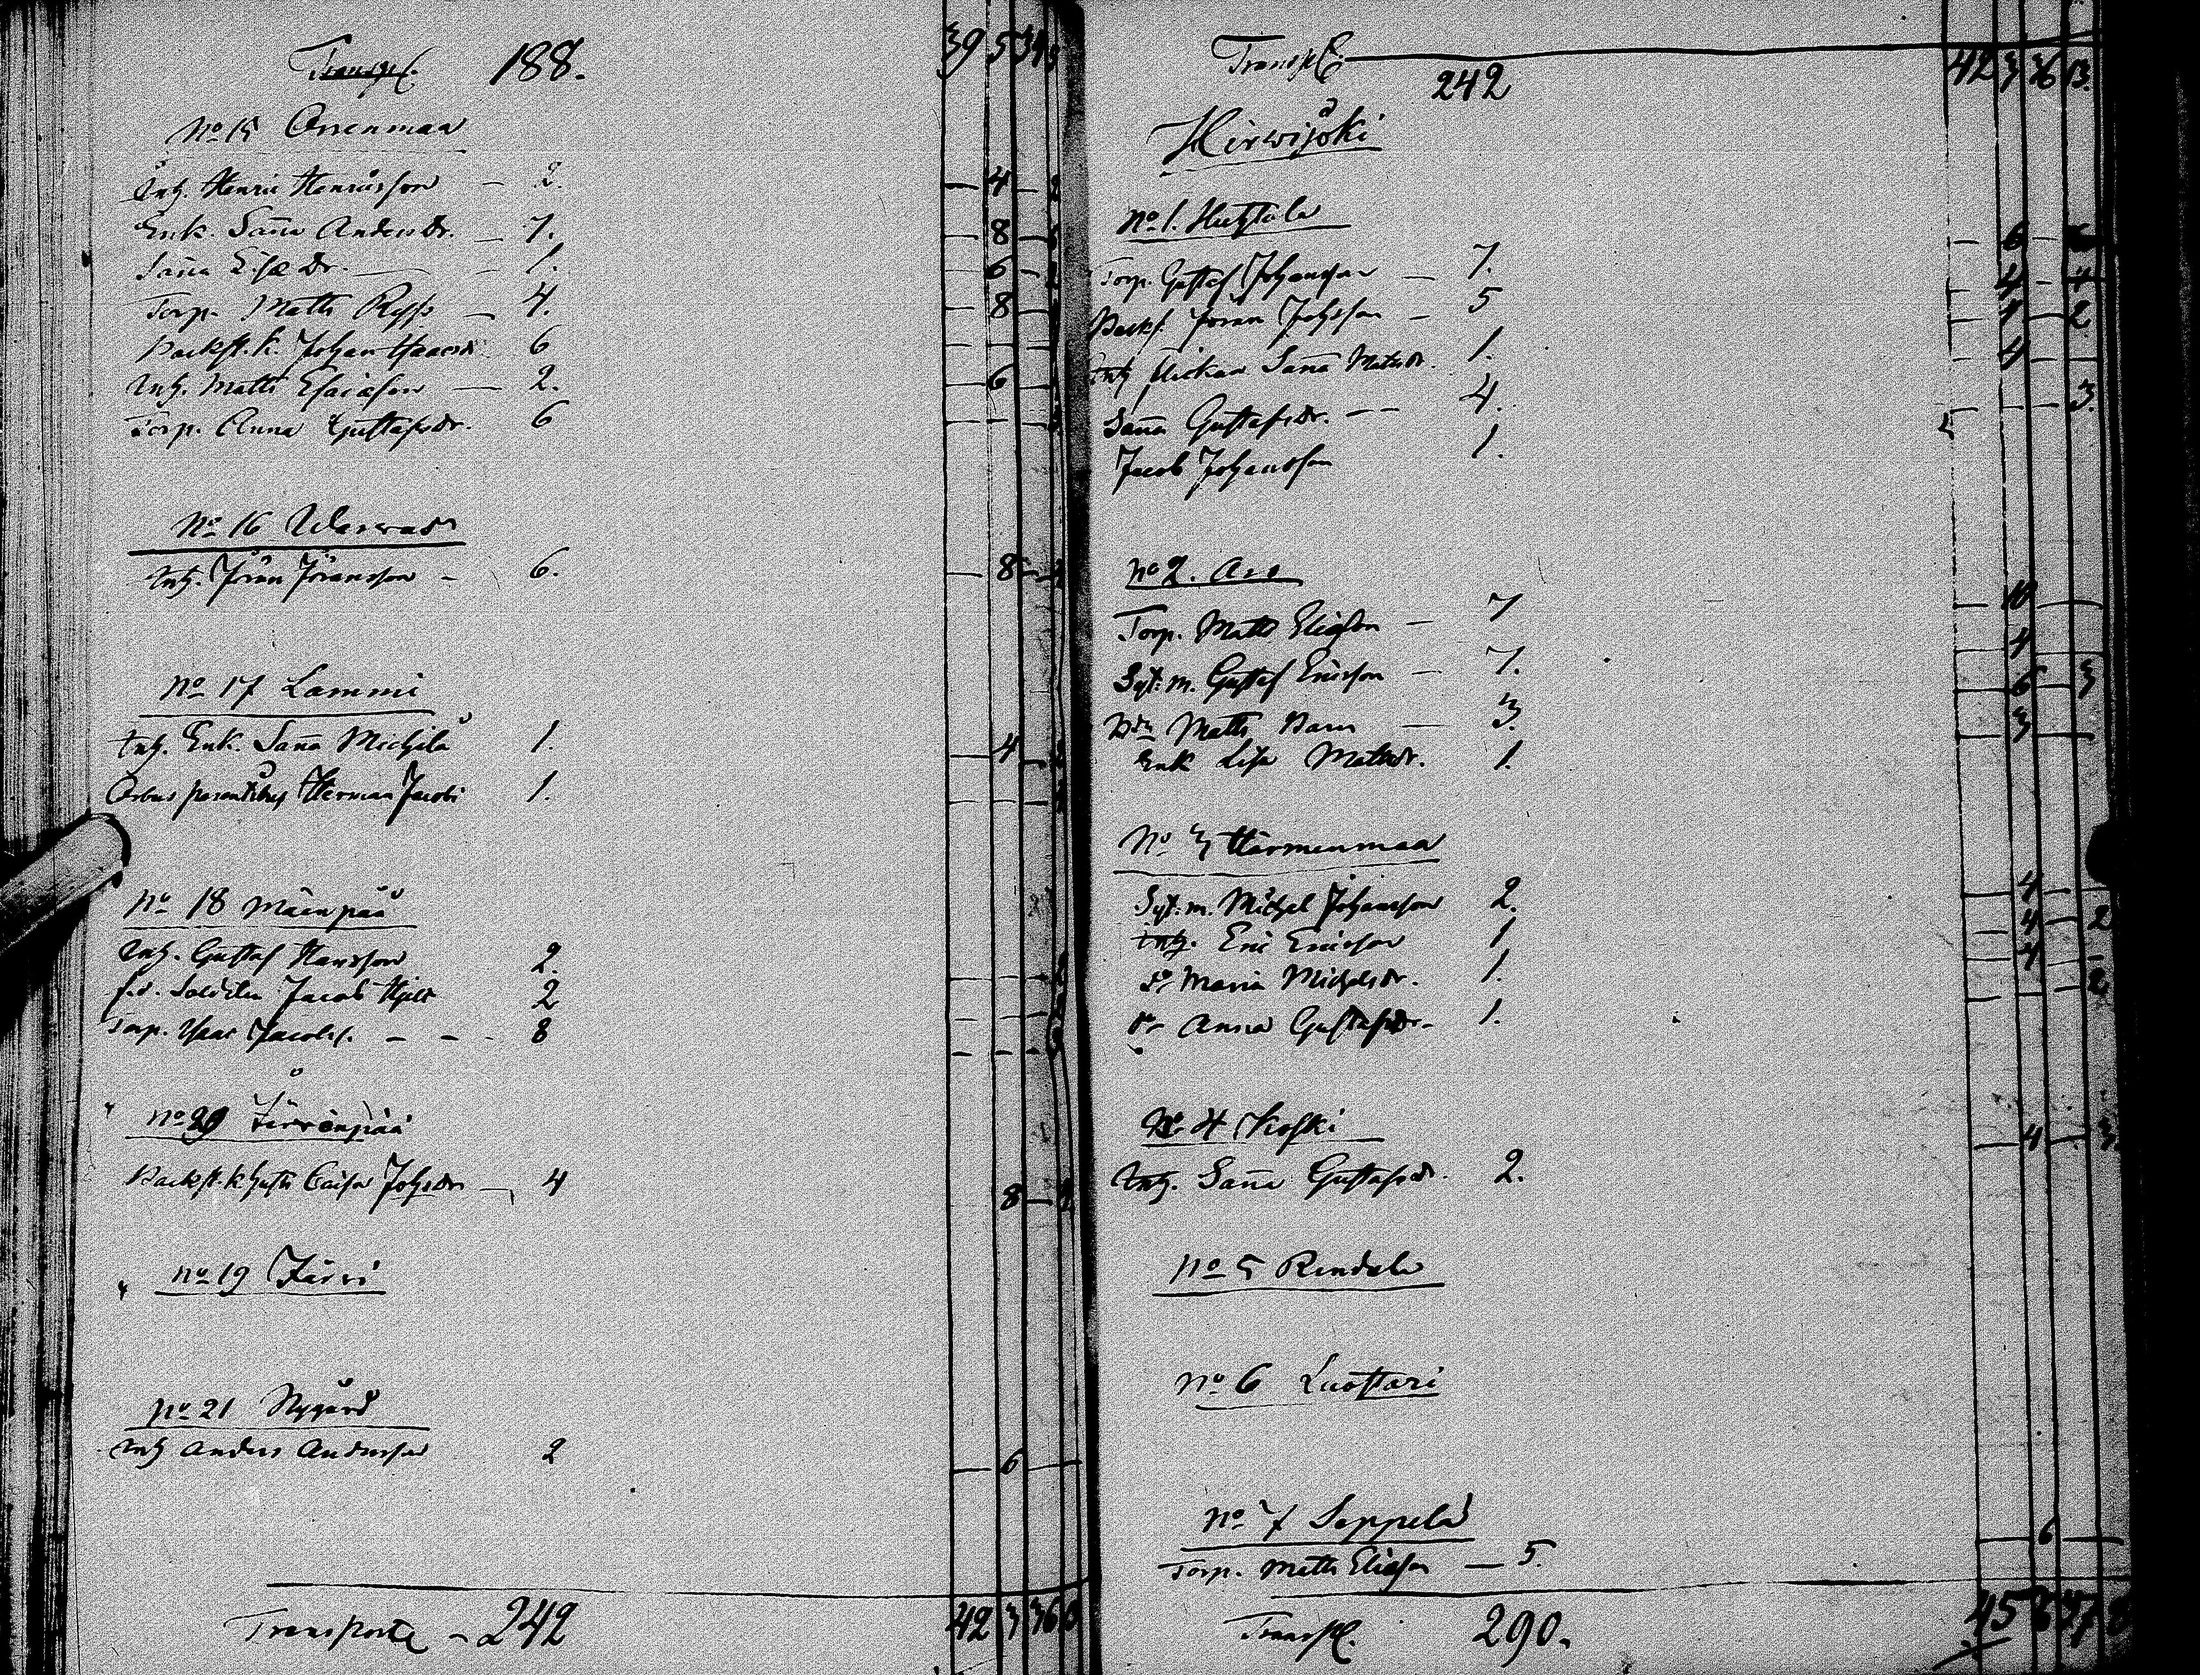 Transpt. 188. 39 5 34
No 15 Orrenmaa
Inh. Henric Henricsson — 2. — 4 — 2
Enk. Sanna Andersdr. — 7. — 8 —
Sanna Elisæ Dr. — 1. 6 —
Torp. Matts — 4. 8 —
Backst.k. Johan Isaacss. 6
Inh. Matts Esaiasson — 2. — 6 —
Torp. Anna Gustafsdr. 6
No 16
Inh. Jöran Göransson — 6. — 8 —
No 17 Lammi
Inh. Enk. Sanna Michelsdr 1. — 4 —
Orbus parentibus Herman Jacobi 1.
No 18 Mäenpää
Inh. Gustaf Hansson 2.
f.d. Soldaten Jacob Hjelt 2
Torp. Isaac Jacobs. — — 8
No 20 Järvenpää
Backst.k. Caisa Johsdr — 4 8 —
No 19 Järvi
No 21 Nygård
Inh Anders Andersson 2 — 6 —
Transporte — 242 42 3 36
Transpt. 242 42 3 36 13.
Hirwijoki
No 1. Huhtala
Torp. Gustaf Johansson — 7. — 6 —
Backst. Jöran Johsson — 5 — 4 — 4
Inh flickan Sanna Matsdr. 1. — 2
Sanna Gustafsdr. — — 4. — 4 —
Jacob Johansson 1. — 3.
No 2. Aro
Torp. Matts Eliasson — 7 — 10 —
Syt.m. Gustaf Ericsson — 7. — 4 —
Matts — 3. — 6 — 3
Enk Lisa Matsdr. 1. — 3 —
No 3 Harmenmaa
Syt.m. Michel Johansson 2. — 4 —
Inh. Eric Ericsson 1 — 4 — 2
Do Maria Michelsdr. 1. — 4 —
Do Anna Gustafsdr. 1. — 2
No 4 Koski
Inh. Sanna Gustafsdr. 2. — 4 — 3
No 5 Rendala
No 6 Luottari
No 7 Seppelä
Torp. Matts Eliasson — 5. — 6 —
Transpt. 290. 45